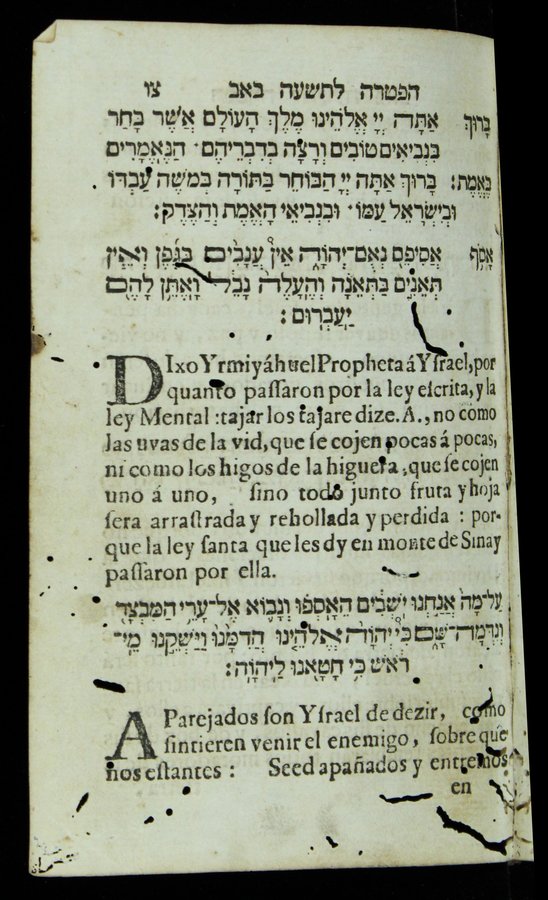 הפטרה לתשעה באב צו
בָּרוּךְ אַתָּה יְיָ אֱלֹהֵינוּ מֶלֶךְ הָעוֹלָם אֲשֶׁר בָּחַר
בִּנְבִיאִים טוֹבִים וְרָצָה בְדִבְרֵיהֶם הַנֶּאֱמָרִים
בֶּאֱמֶת: בָּרוּךְ אַתָּה יְיָ הַבּוֹחֵר בַּתּוֹרָה בְּמֹשֶׁה עַבְדּוֹ
וּבְיִשְׂרָאֵל עַמּוֹ וּבִנְבִיאֵי הָאֱמֶת וְהַצֶּדֶק:
אָסֹף אֲסִיפֵם נְאֻם־יְהוָה אֵין עֲנָבִים בַּגֶּפֶן וְאֵין
תְּאֵנִים בַּתְּאֵנָה וְהֶעָלֶה נָבֵל וָאֶתֵּן לָהֶם
יַעַבְרוּם:
DIxo Yrmiyáhu el Propheta á Yſrael, por
quanto paſſaron por la ley eſcrita, y la
ley Mental : tajar los tajare dize. A., no como
las uvas de la vid, que ſe cojen pocas á pocas,
ni como los higos de la higuera, que ſe cojen
uno á uno, ſino todo junto fruta y hoja
ſera arraſtrada y rehollada y perdida : por-
que la ley ſanta que les dy en monte de Sinay
paſſaron por ella.
עַל־מָה אֲנַחְנוּ יֹשְׁבִים הֵאָסְפוּ וְנָבוֹא אֶל־עָרֵי הַמִּבְצָר
וְנִדְּמָה־שָּׁם כִּי יְהוָה אֱלֹהֵינוּ הֲדִמָּנוּ וַיַּשְׁקֵנוּ מֵי־
רֹאשׁ כִּי חָטָאנוּ לַיהוָה:
AParejados ſon Yſrael de dezir, como
ſintieren venir el enemigo, ſobre que
nos eſtantes : Seed apañados y entremos
en